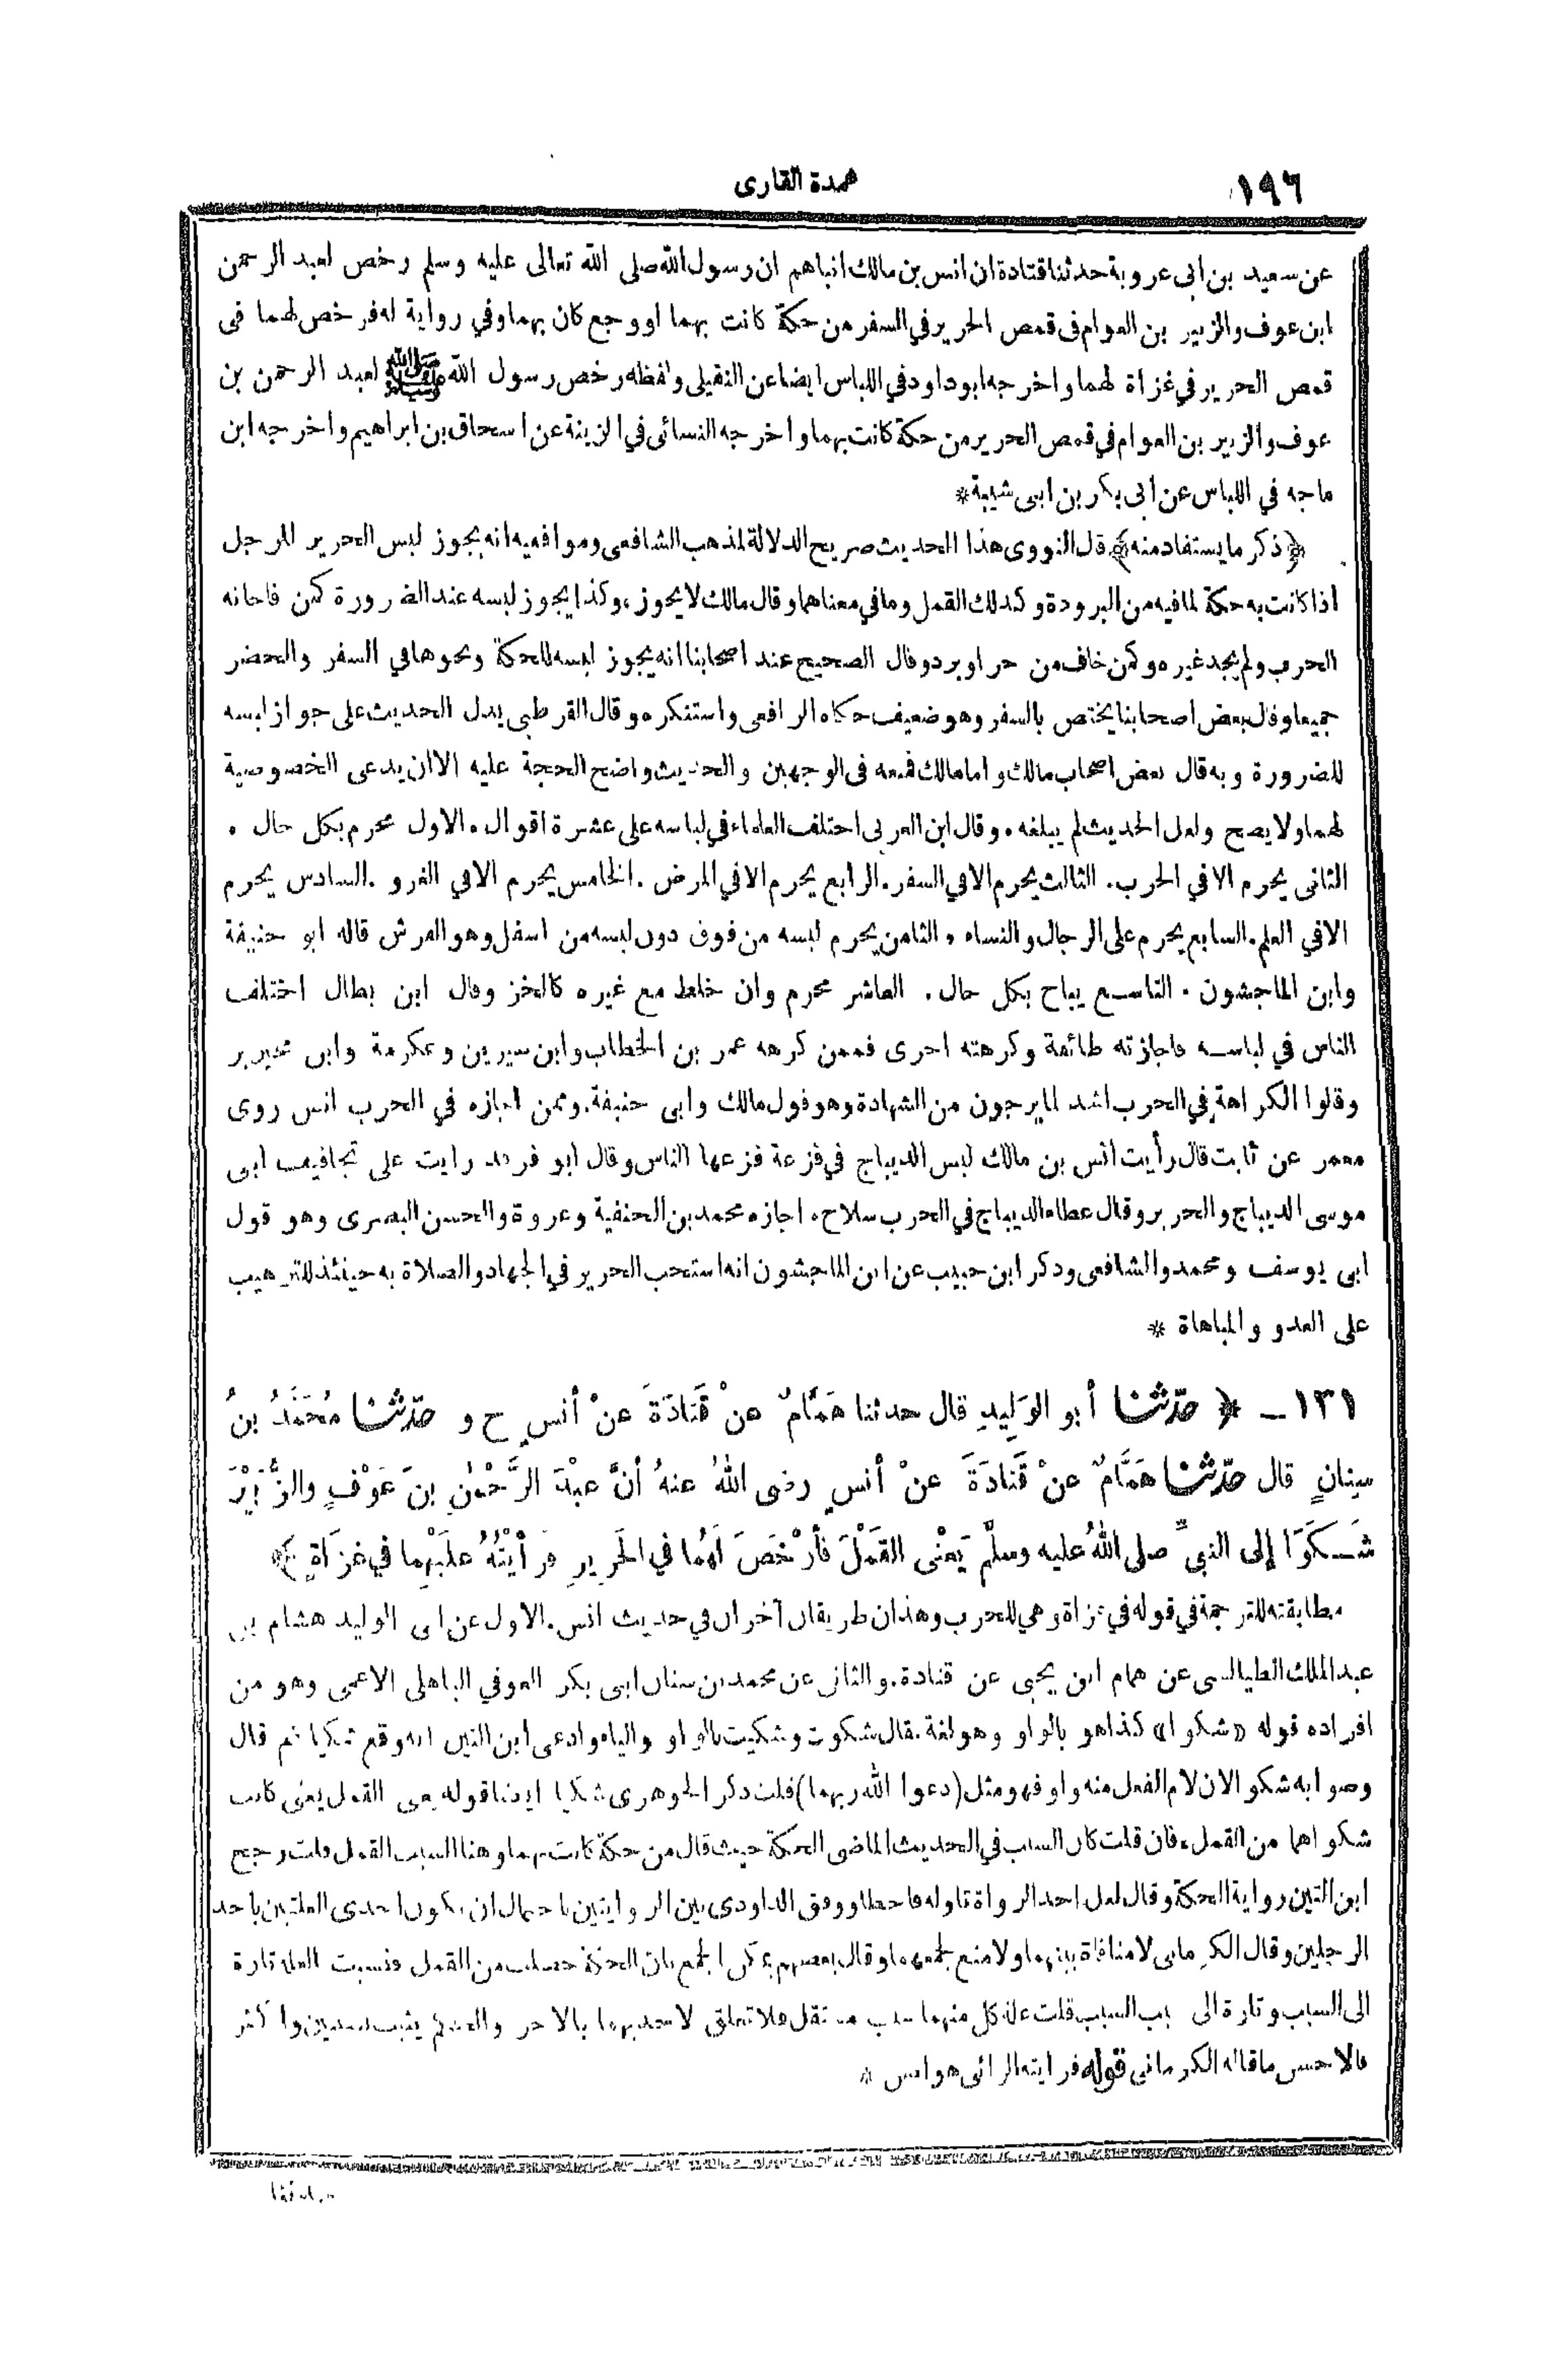 ١٩٦
عمدة القارى
عن سعيد بن ابى عروبة حدثنا قتادة ان انس بن مالك انباهم ان رسول الله صلى الله تعالى عليه وسلم رخص لعبد الرحمن
ابن عوف والزبير بن العوام فى قمص الحرير في السفر من حكة كانت بهما او وجع كان بهما وفي رواية له فرخص لهما فى
قمص الحرير في غزاة لهما واخرجه ابو داود في اللباس ايضا عن النفيلى ولفظه رخص رسول الله ﷺ لعبد الرحمن بن
عوف والزبير بن العوام في قمص الحرير من حكة كانت بهما واخرجه النسائى في الزينة عن اسحاق بن ابراهيم واخرجه ابن
ماجه في اللباس عن ابى بكر بن ابى شيبة *
﴿ذكر ما يستفاد منه﴾ قال النووى هذا الحديث صريح الدلالة لمذهب الشافعى وموافقيه انه يجوز لبس الحرير للرجل
اذا كانت به حكة لما فيه من البرودة وكذلك القمل وما في معناهما وقال مالك لا يجوز، وكذا يجوز لبسه عند الضرورة كمن فاجأته
الحرب ولم يجد غيره وكمن خاف من حر او برد وقال الصحيح عند اصحابنا انه يجوز لبسه للحكة ونحوها في السفر والحضر
جميعا وقال بعض اصحابنا يختص بالسفر وهو ضعيف حكاه الرافعى واستنكره وقال القرطبى يدل الحديث على جواز لبسه
للضرورة وبه قال بعض اصحاب مالك واما مالك فمنعه فى الوجهين والحديث واضح الحجة عليه الا ان يدعى الخصوصية
لهما ولا يصح ولعل الحديث لم يبلغه. وقال ابن العربى اختلف العلماء في لباسه على عشرة اقوال. الاول محرم بكل حال.
الثانى يحرم الا في الحرب. الثالث يحرم الا في السفر. الرابع يحرم الا في المرض. الخامس يحرم الا في الغزو. السادس يحرم
الا في العلم. السابع يحرم على الرجال والنساء. الثامن يحرم لبسه من فوق دون لبسه من اسفل وهو الفرش قاله ابو حنيفة
وابن الماجشون. التاسع يباح بكل حال. العاشر محرم وان خلط مع غيره كالخز وقال ابن بطال اختلف
الناس في لباسه فاجازته طائفة وكرهته اخرى فممن كرهه عمر بن الخطاب وابن سيرين وعكرمة وابن محيريز
وقالوا الكراهة في الحرب اشد لما يرجون من الشهادة وهو قول مالك وابى حنيفة. وممن اجازه في الحرب انس روى
معمر عن ثابت قال رأيت انس بن مالك لبس الديباج في فزعة فزعها الناس وقال ابو فرقد رايت على تجافيف ابى
موسى الديباج والحرير وقال عطاء الديباج في الحرب سلاح. اجازه محمد بن الحنفية وعروة والحسن البصرى وهو قول
ابى يوسف ومحمد والشافعى وذكر ابن حبيب عن ابن الماجشون انه استحب الحرير في الجهاد والصلاة به حينئذ للترهيب
على العدو والمباهاة *
١٣١ ـ ﴿ حدّثنا أبو الوَلِيدِ قال حدثنا هَمَّامٌ عنْ قَتَادَةَ عنْ أنسٍ ح و حدّثنا مُحَمَّدُ بنُ
سِنانٍ قال حدّثنا هَمَّامٌ عنْ قَتَادَةَ عنْ أنسٍ رضى اللهُ عنهُ أنَّ عبْدَ الرَّحْمٰنِ بنَ عَوْفٍ والزُّبَيْرَ
شَكَوَا إلى النبيِّ صلى اللهُ عليه وسلّم يَعْنى القَمْلَ فأرْخَصَ لَهُما في الحَرِيرِ فَرَأيْتُهُ عليْهِما في غزَاةٍ ﴾
مطابقته للترجمة في قوله في غزاة وهي للحرب وهذان طريقان آخران في حديث انس. الاول عن ابى الوليد هشام بن
عبد الملك الطيالسى عن همام ابن يحيى عن قتادة. والثانى عن محمد بن سنان ابى بكر العوفي الباهلى الاعمى وهو من
افراده قوله «شكوا» كذا هو بالواو وهو لغة يقال شكوت وشكيت بالواو والياء وادعى ابن التين انه وقع شكيا ثم قال
وصوابه شكوا لان لام الفعل منه واو فهو مثل (دعوا الله ربهما) قلت ذكر الجوهرى شكيا ايضا قوله يعنى القمل يعنى كانت
شكواهما من القمل. فان قلت كان السبب في الحديث الماضى الحكة حيث قال من حكة كانت بهما وهنا السبب القمل قلت رجح
ابن التين رواية الحكة وقال لعل احد الرواة تاوله فاخطا ووفق الداودى بين الروايتين باحتمال ان يكون احدى العلتين باحد
الرجلين وقال الكرمانى لا منافاة بينهما ولا منع لجمعهما وقال بعضهم يمكن الجمع بان الحكة حصلت من القمل فنسبت العلة تارة
الى السبب وتارة الى سبب السبب قلت علة كل منهما سبب مستقل فلا تعلق لاحديهما بالاخر والحكم يثبت بسببين واكثر
فالاحسن ما قاله الكرمانى قوله فرايته الرائى هو انس *